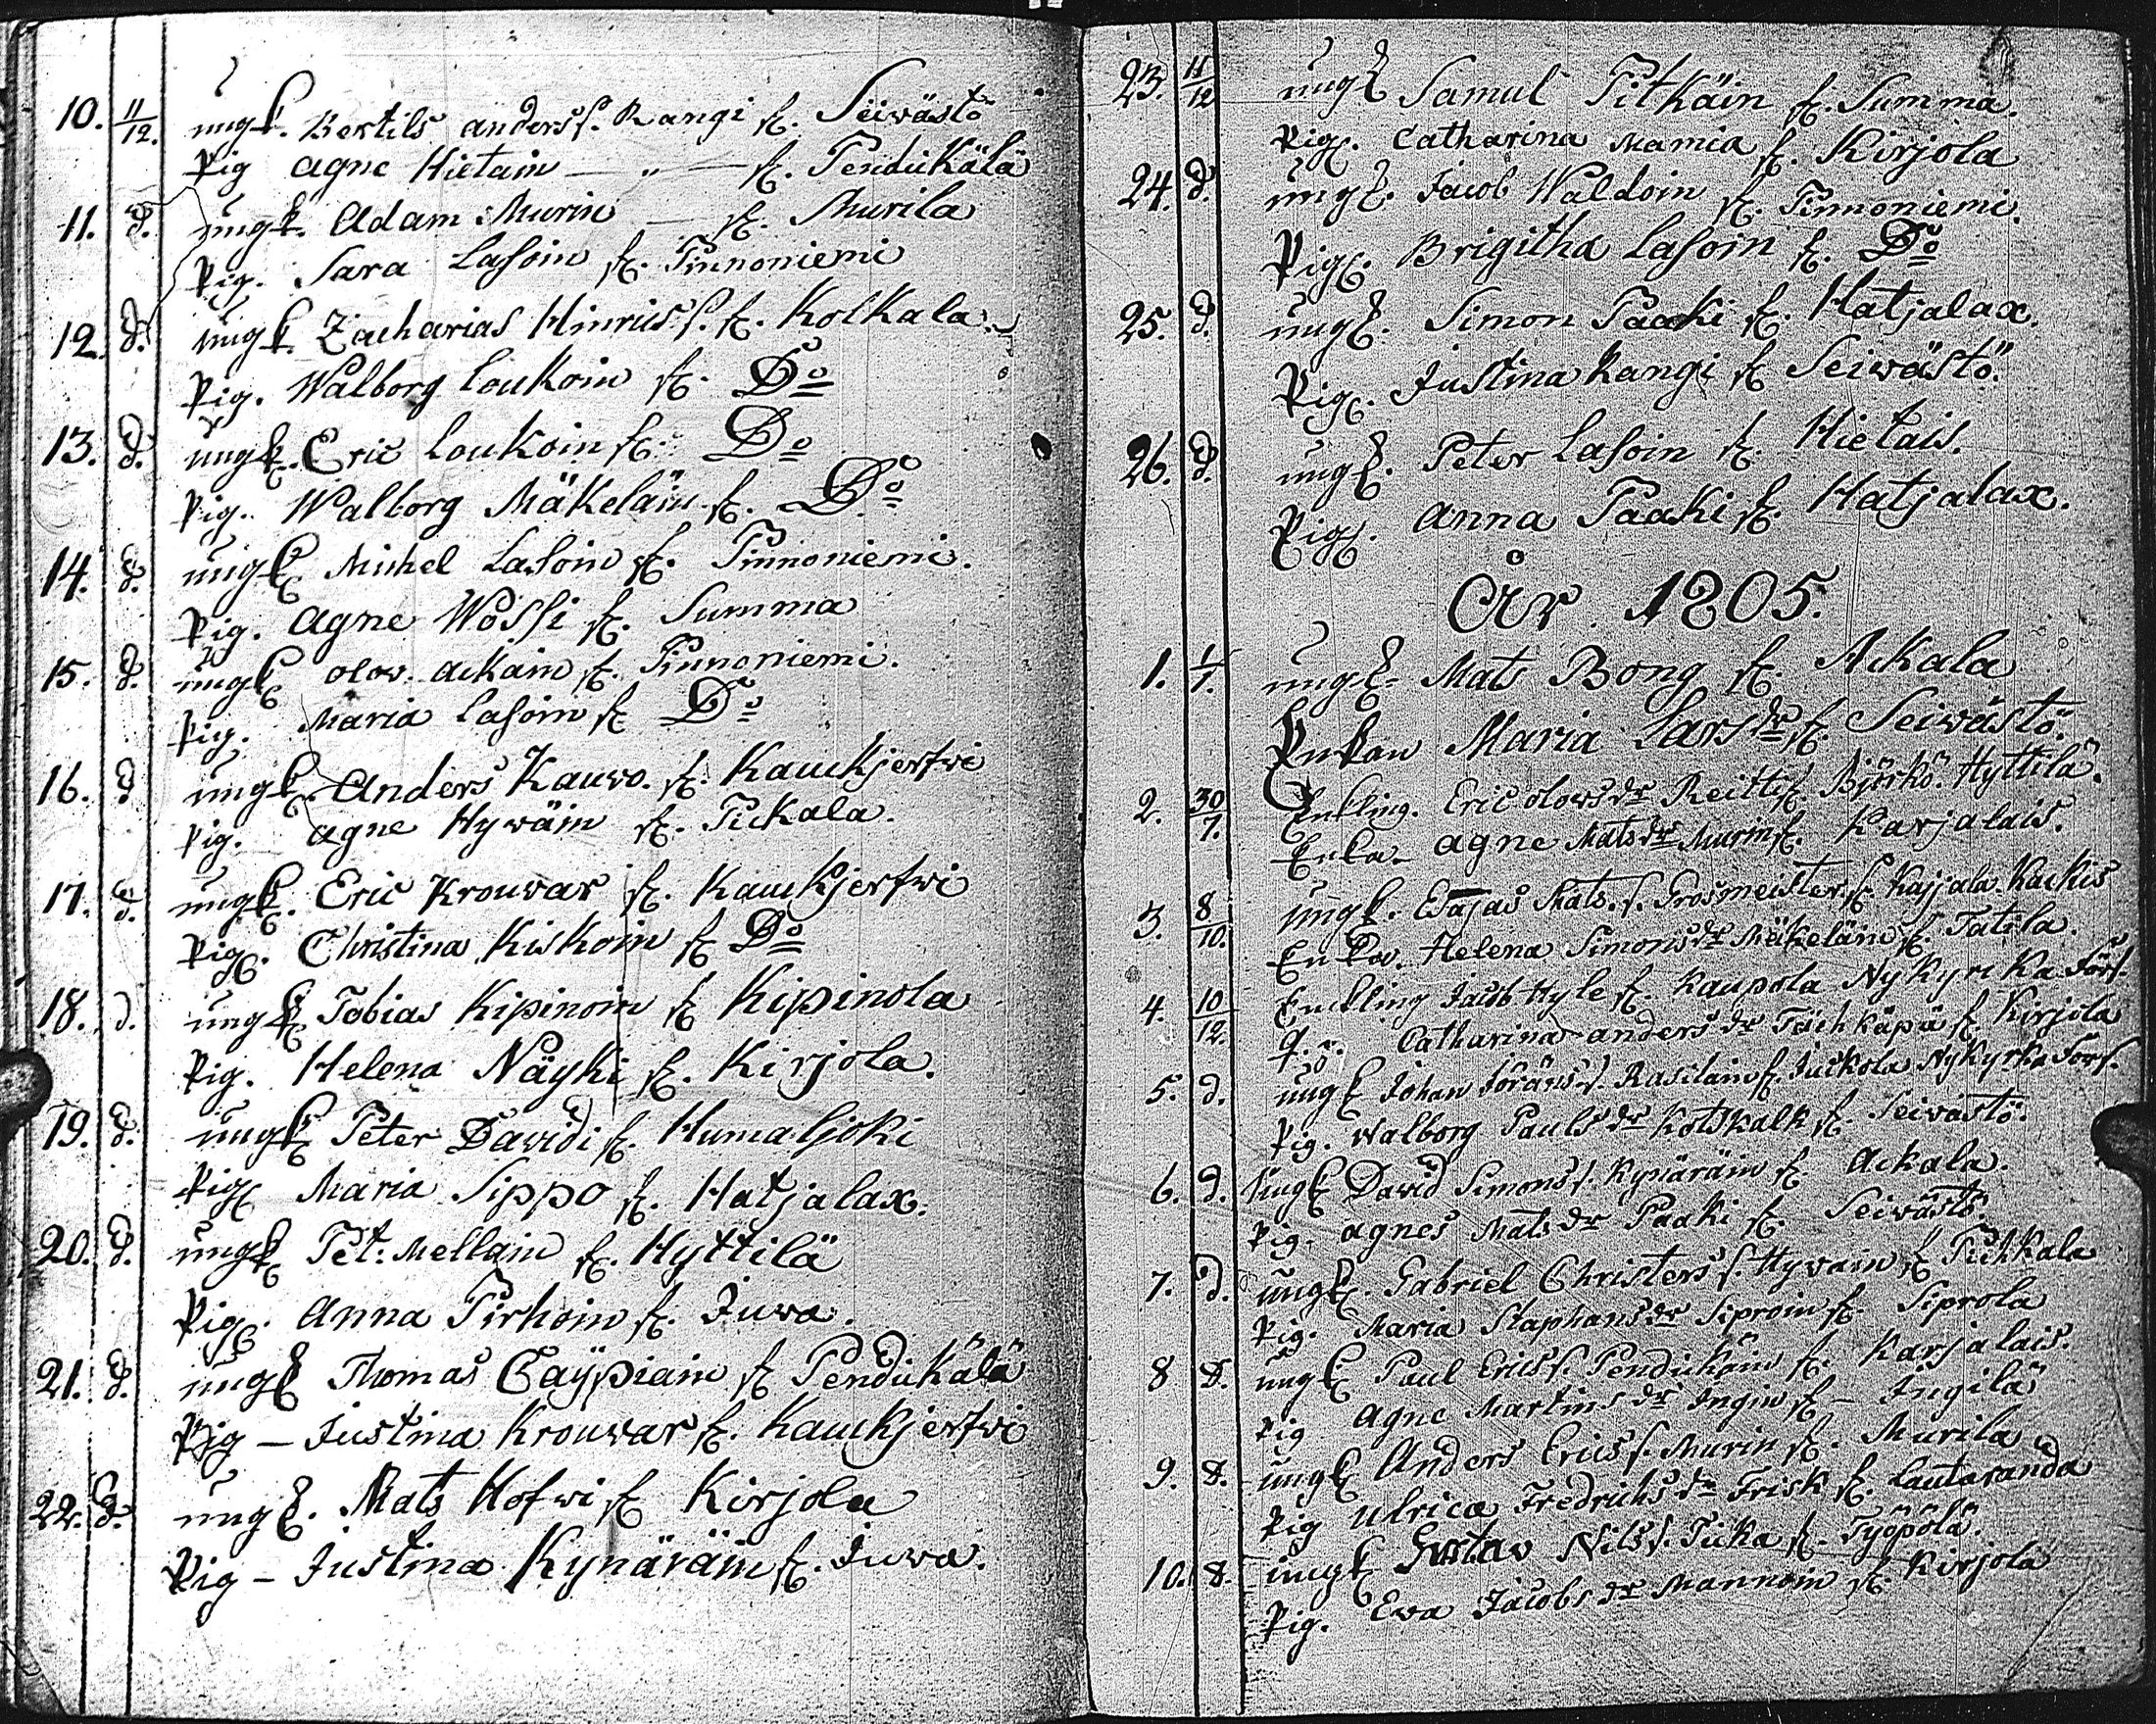 10. 11/12. ungk. Bertils anders s. Rangi fr. Seiwästö
Pig agne Hietain — " — fr. Pendukälä
11. d. ungk. Adam Murin — fr. Murila
Pig. Sara Lasoin fr. Pinnoniemi
12. d. ungk. Zacharias Hinrics s. fr. Kolkala
Pig. Walborg Loukoin fr. Do
13. d. ungk. Eric Loukoin fr. Do
Pig. Walborg Mäkeläin fr. Do
14. d. ungk Michel Lasoin fr. Pinnoniemi.
Pig. Agne Wossi fr. Summa
15. d. ungk olov. Ackain fr. Pinnoniemi.
Pig. Maria Lasoin fr Do
16. d ungk. Anders Kauvo. fr. Kauckjerfwi
Pig. agne Hywäin fr. Pickala.
17. d. ungk. Eric Krouvar fr. Kauckjerfwi
Pig. Christina Kiskoin fr Do
18. d. ungk Tobias Kipinoin fr Kipinola
Pig. Helena Näyki fr. Kirjola.
19. d. ungk Peter Davidi fr. Humaljoki
Pig Maria Sippo fr. Hatjalax.
20. d. ungk Pet: Mellain fr. Hyttilä
Pig. Anna Pirhoin fr. Juva.
21. d. ungk Thomas Caypiain fr Pendukälä
Pig — Justina Krouvar fr. Kauckjerfwi
22. d. ungk. Mats Hofwi fr Kirjola
Pig — Justina Kynäräin fr. Juva.
23. 11/12 ungk Samul Pitkäin fr. Summa.
Pig. Catharina Mamia fr. Kirjola
24. d. ungk. Jacob Waldoin fr. Pinnoniemi.
Pig. Brigitha Lasoin fr. Do
25. d. ungk. Simon Paaki fr. Hatjalax.
Pig. Justina Rangi fr Seiwästö.
26. d. ungk. Peter Lasoin fr. Hietais.
Pig. Anna Paaki fr. Hatjalax.
År 1805.
1. 1/1. ungk. Mats Bong fr. Ackala
Enkan Maria Lars dr fr. Seiwästö.
2. 30/7. Enkling. Eric olovs Reitti fr. Björkö. Hyttilä.
Enka. agne Mats dr Murin fr. Karjalais.
3. 8/10. ungk. Esajas Mats. s. Grosmeister fr. Kaijala Kackis
Enka. Helena Simons dr Mäkeläin fr. Tatila.
4. 10/12. Enckling Jacob Hyle fr. Kaupola Nykyrka Förs.
q. p. Catharina anders dr fr. Kirjola
5. d. ungk Johan Jöräns s. Rasilain fr. Juckola Nykyrka Förs.
Pig. Walborg Pauls dr Kotskalk fr. Seiwästö.
6. d. ungk David Simons s. Kynäräin fr Ackala.
Pig. agnes Mats dr Paaki fr. Seiwästö.
7. d. ungk. Gabriel Christers s. Hyvain fr Pickkala
Pig. Maria Staphans dr Siproin fr. Siprola
8 d. ungk Paul Erics s. Pendikäin fr. Karjalais.
Pig agne Martins dr Ingin fr — Ingilä
9. d. ungk Anders Erics s. Murin fr. Murila
Pig Ulrica Fredrichs dr Frisk fr. Lautaranda
10. d. ungk Gustav Nils s. Ticka fr. Työpölä.
Pig. Eva Jacobs dr Mannoin fr. Kirjola